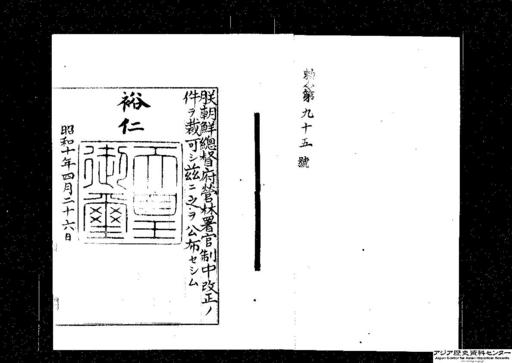 勅令第九十五號
朕朝鮮總督府營林署官制中改正ノ
件ヲ裁可シ茲ニ之ヲ公布セシム
裕仁
天皇御璽
昭和十年四月二十六日
アジア歴史資料センター
Japan Center for Asian Historical Records